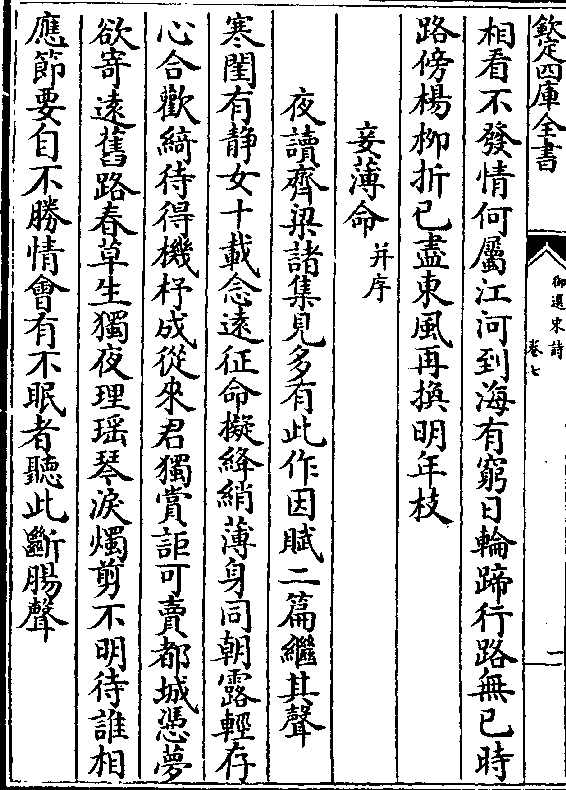 欽定四庫全書
御選宋詩
卷七
二
相看不發情何屬江河到海有窮日輪蹄行路無已時
路傍楊柳折已盡東風再換明年枝
妾薄命并序
夜讀齊梁諸集見多有此作因賦二篇繼其聲
寒閨有静女十載念遠征命擬絳綃薄身同朝露輕存
心合歡綺待得機杼成從來君獨賞詎可賣都城憑夢
欲寄遠舊路春草生獨夜理瑶琴淚燭剪不明待誰相
應節要自不勝情會有不眠者聽此斷腸聲